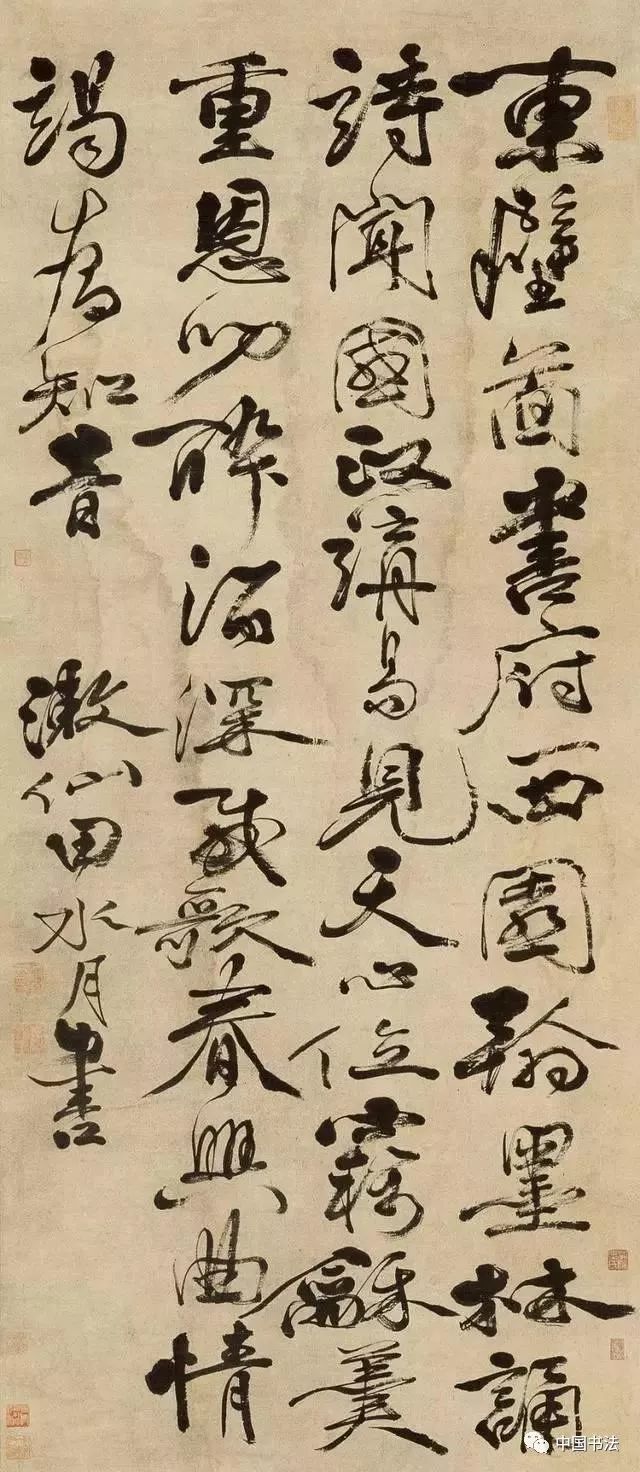 東壁圖書府西園翰墨林誦
詩聞國政講易見天心位竊龢羹
重恩叨醉酒深載歌春興曲情
竭為知音
漱仙田水月書
中国书法